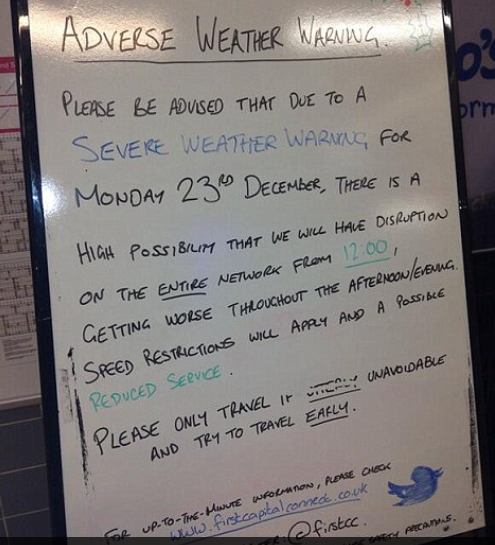 ADVERSE WEATHER WARNING.
PLEASE BE ADVISED THAT DUE TO A
SEVERE WEATHER WARNING FOR
MONDAY 23RD DECEMBER, THERE IS A
HIGH POSSIBILITY THAT WE WILL HAVE DISRUPTION
ON THE ENTIRE NETWORK FROM 12:00,
GETTING WORSE THROUGHOUT THE AFTERNOON/EVENING.
SPEED RESTRICTIONS WILL APPLY AND A POSSIBLE
REDUCED SERVICE.
PLEASE ONLY TRAVEL IF UNAVOIDABLE
AND TRY TO TRAVEL EARLY.
FOR UP-TO-THE-MINUTE INFORMATION, PLEASE CHECK
www.firstcapitalconnect.co.uk
@firstcc.
SAFETY PRECAUTIONS.